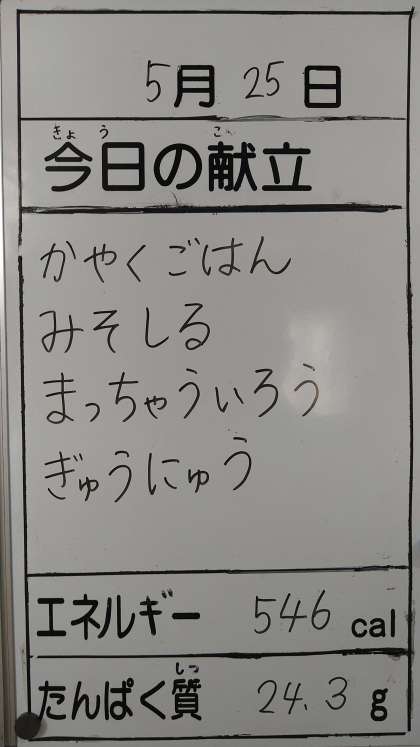 5月25日
きょう こん
今日の献立
かやくごはん
みそしる
まっちゃういろう
ぎゅうにゅう
エネルギー 546 cal
しつ
たんぱく質 24.3 g